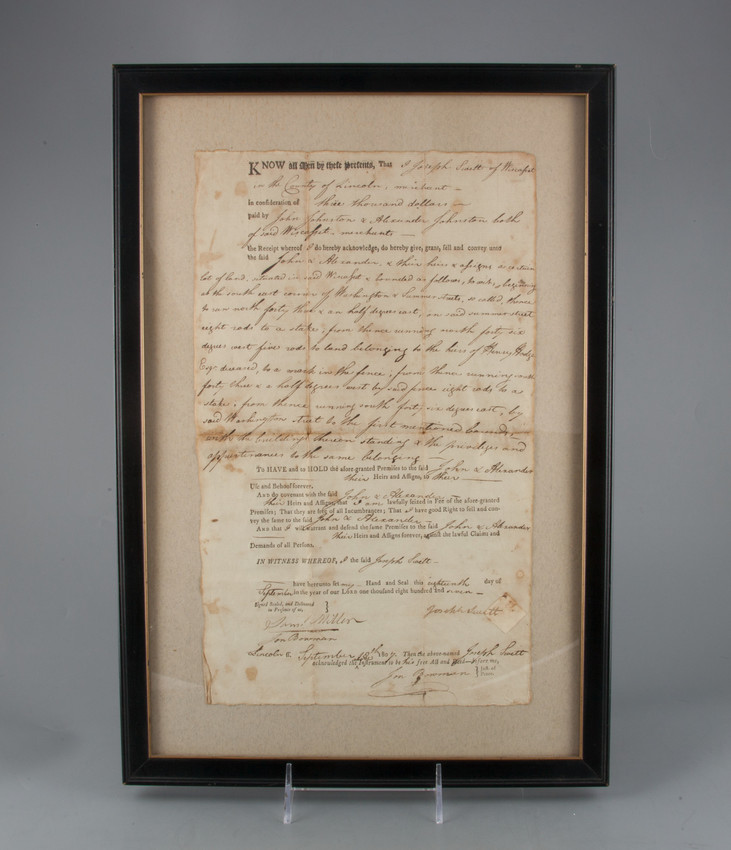 KNOW all Men by these presents, That I Joseph Swett of Wiscasset
in the County of Lincoln, merchant —
In consideration of three thousand dollars —
paid by John Johnston & Alexander Johnston both
of said Wiscasset — merchants —
the Receipt whereof I do hereby acknowledge, do hereby give, grant, sell and convey unto
the said John & Alexander, & their heirs & assigns a certain
lot of land, situated in said Wiscasset & bounded as follows, to wit, beginning
at the south east corner of Washington & Summer streets, so called, thence
to run north forty three & an half degrees east, on said summer street
eight rods to a stake; from thence running north forty six
degrees west five rods to land belonging to the heirs of Henry Hodge
Esqr. deceased, to a mark in the fence; from thence running south
forty three & a half degrees west by said fence eight rods to a
stake; from thence running south forty six degrees east, by
said Washington street to the first mentioned bounds, —
with the buildings thereon standing & the privileges and
appurtenances to the same belonging —
To HAVE and to HOLD the afore granted Premises to the said John & Alexander
their Heirs and Assigns, to their
Use and Behoof forever.
AND I do covenant with the said John & Alexander —
their Heirs and Assigns, that I am lawfully seized in Fee of the afore granted
Premises; That they are free of all Incumbrances; That I have good Right to sell and con-
vey the same to the said John & Alexander —
AND that I will warrant and defend the same Premises to the said John & Alexander
their Heirs and Assigns forever, against the lawful Claims and
Demands of all Persons.
IN WITNESS WHEREOF, I the said Joseph Swett —
have hereunto set my Hand and Seal this eighteenth day of
September in the year of our LORD one thousand eight hundred and seven —
Signed Sealed, and Delivered
in Presence of us,
Joseph Swett
Saml. Miller
Jon Bowman
Lincoln ss. September 18th 1807. Then the above named Joseph Swett
acknowledged the Instrument to be his free Act and Deed before me,
Jon Bowman Just. of Peace.